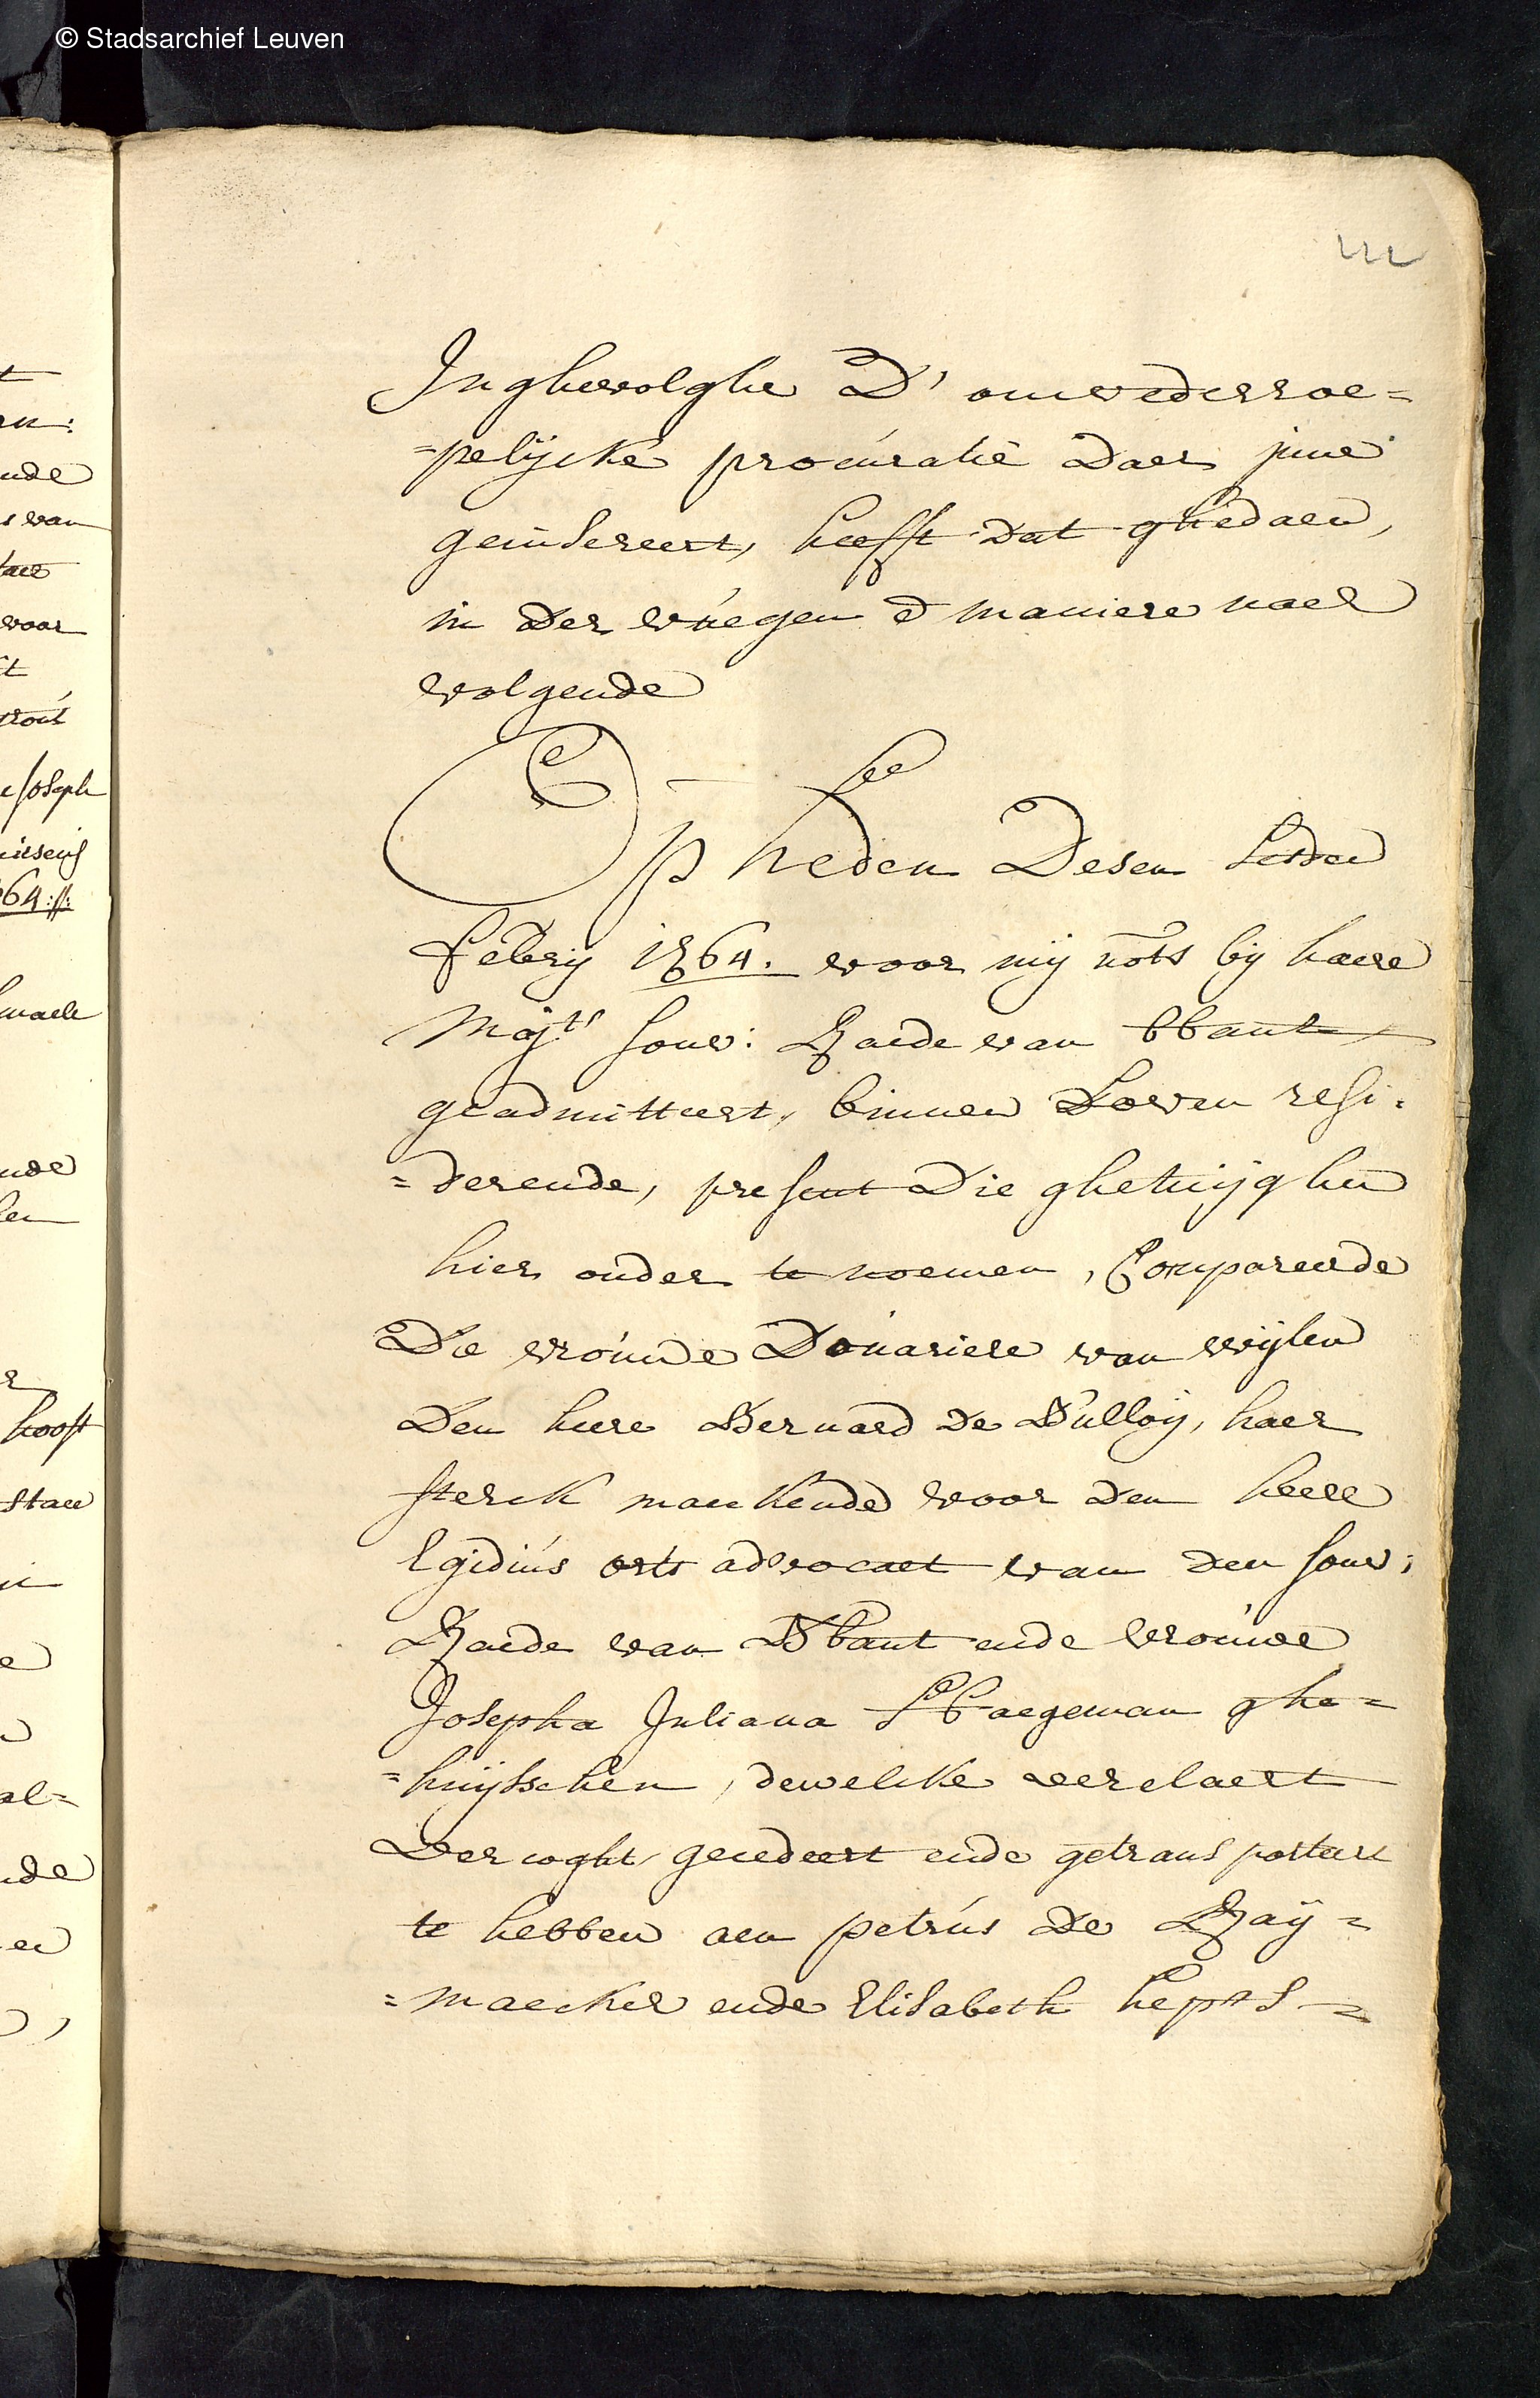 © Stadsarchief Leuven
Inghevolghe D' onwederroe=
=pelijcke procúratie daer inne
geinsereert, heeft dat ghedaen,
in der vúegen ē maniere naer
volgende
Op heden desen sesden
febrij 1764. voor mij nots bij haere
Majts souv: Raede van bbant
geadmitteert, binnen Loven resi=
=derende, present die ghetúijghen
hier onder te noemen, Comparende
De vroúwe Doúariere van wijlen
Den heere Bernard De Búlloij, haer
sterck maeckende voor den heere
Egidiús orts advocaet van den souv:
Raede van Bbant ende vroúwe
Josepha Juliana ghe=
=húijsschen, dewelcke verclaert
vercoght, gecedeert ende getransporteert
te hebben aen petrús De Raij=
=maecker ende Elisabeth hepts=
t
nde
s van
voor
t
e Joseph
64:
maele
nde
hooft
al=
nde